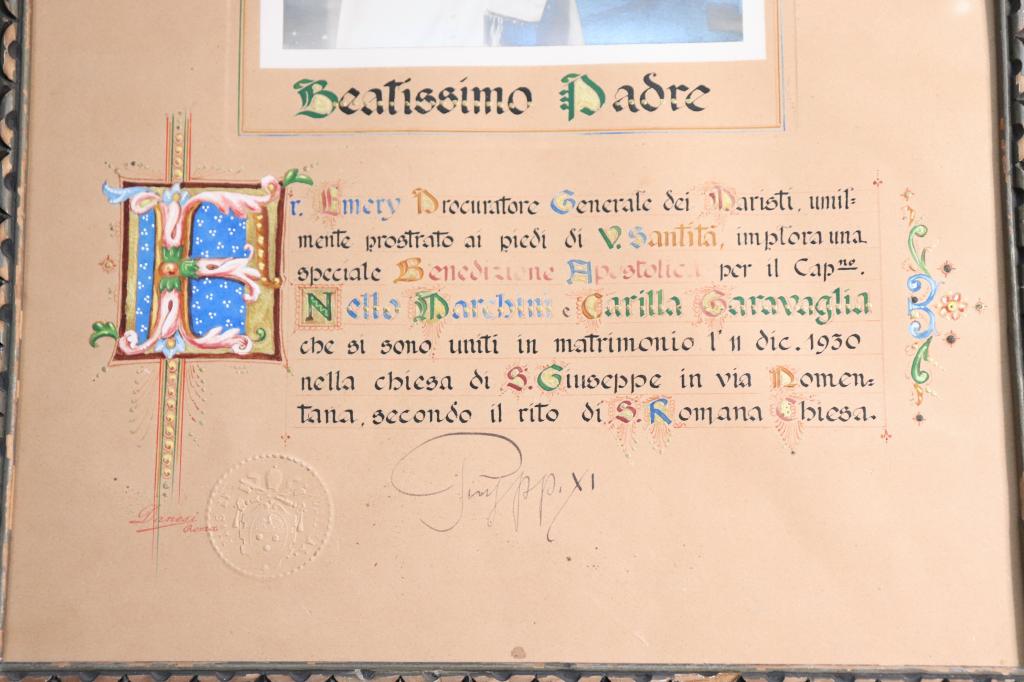 Beatissimo Padre
Fr. Emery Procuratore Generale dei Maristi, umil=
mente prostrato ai piedi di V. Santità, implora una
speciale Benedizione Apostolica per il Cap.no
Nello Marchini e Carilla Garavaglia
che si sono uniti in matrimonio l' 11 dic. 1930
nella chiesa di S. Giuseppe in via Nomen=
tana, secondo il rito di S. Romana Chiesa.
Pius pp. XI
Danesi
Roma